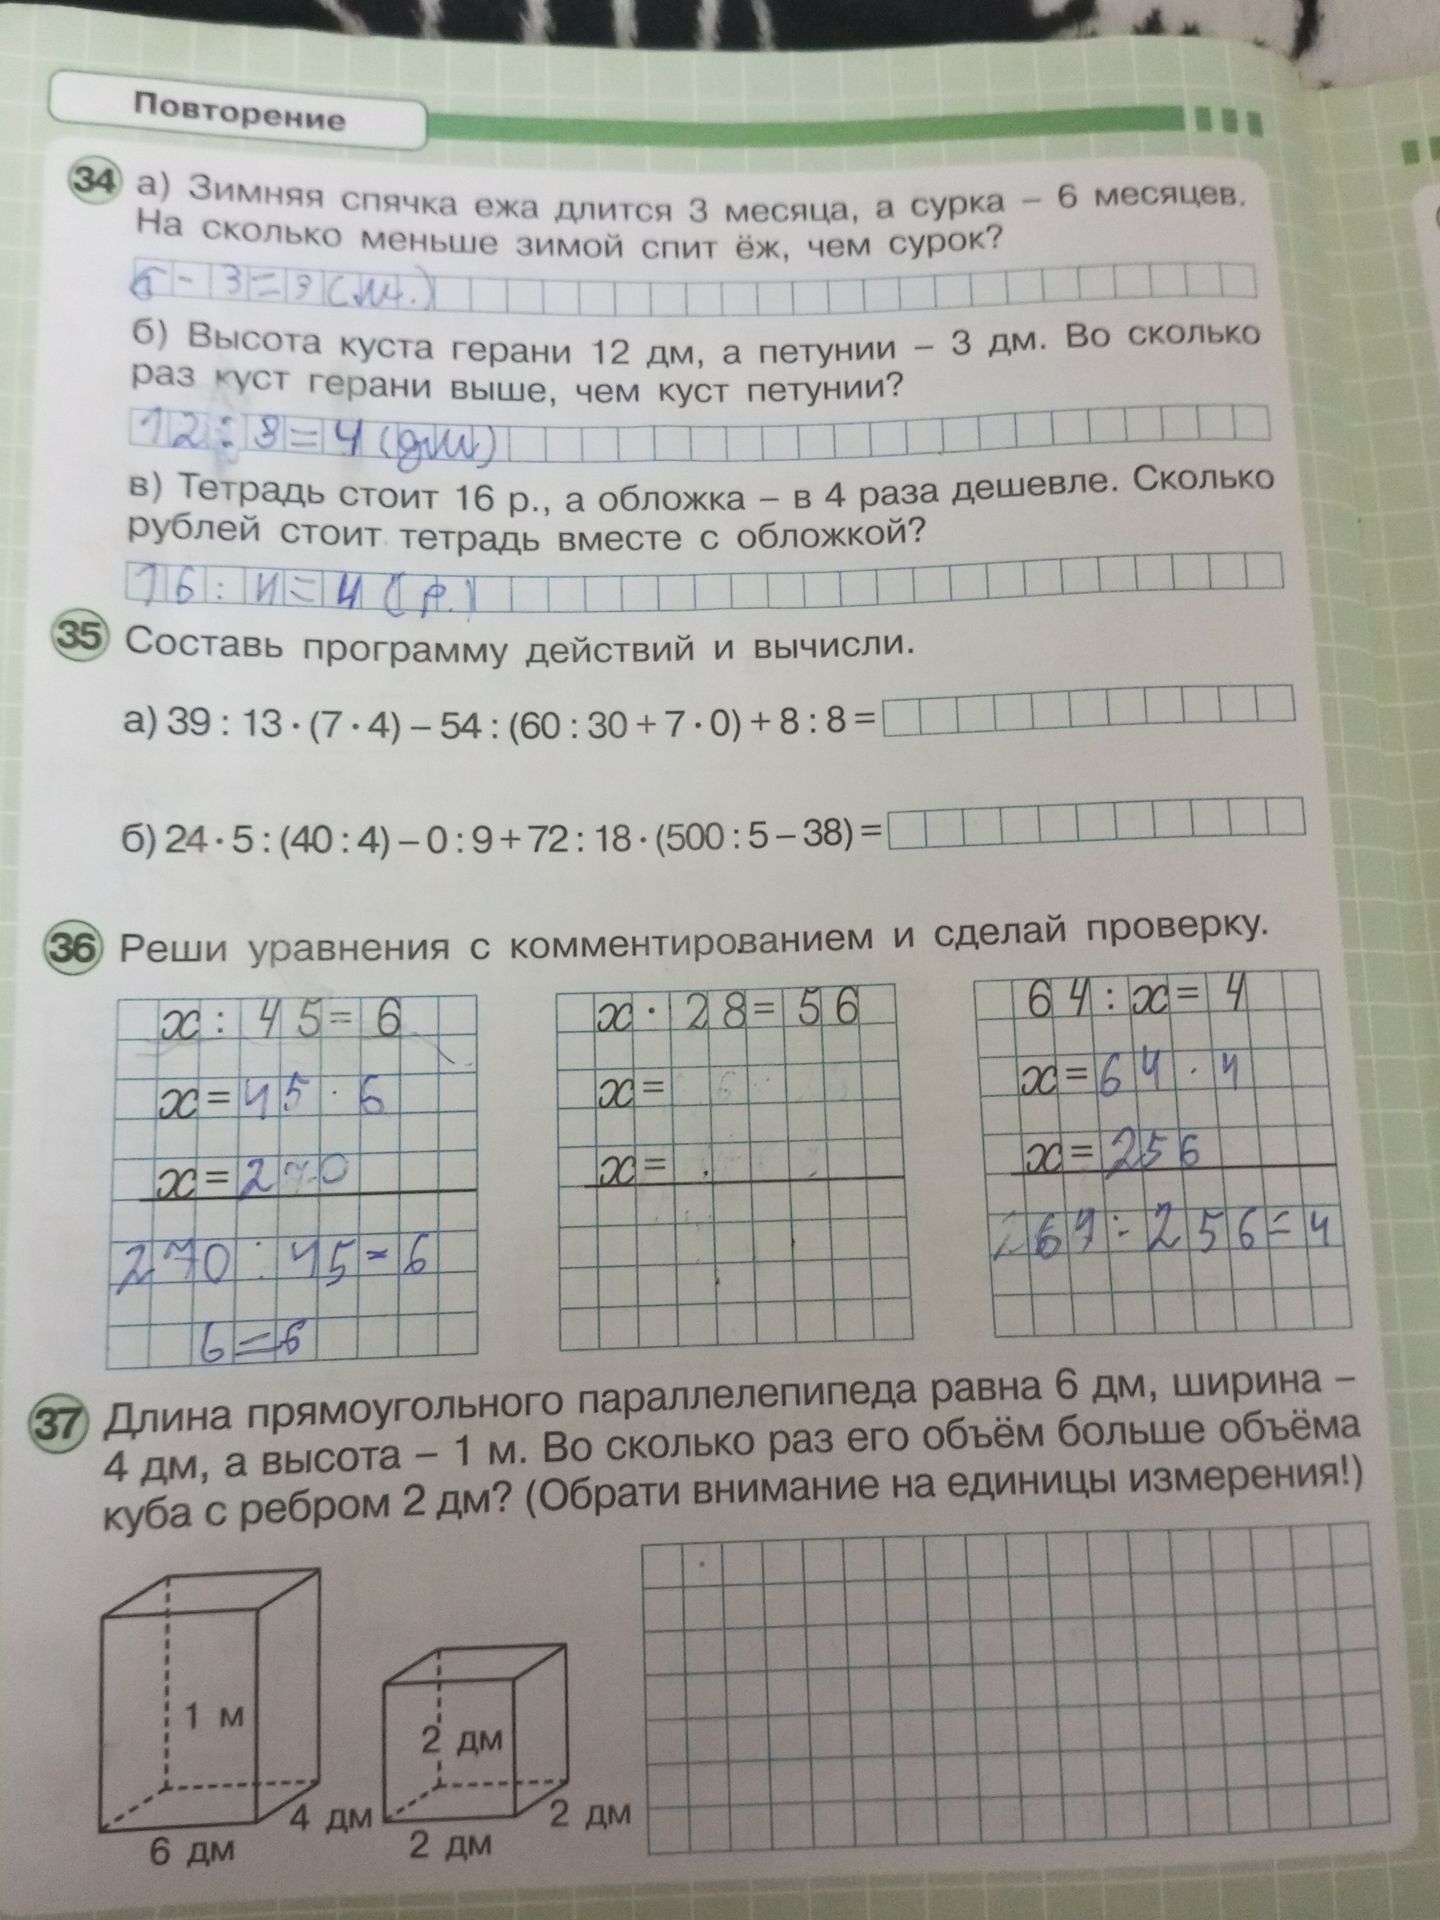 Повторение
34 а) Зимняя спячка ежа длится 3 месяца, а сурка – 6 месяцев.
На сколько меньше зимой спит ёж, чем сурок?
6 - 3 = 3 (м.)
б) Высота куста герани 12 дм, а петунии – 3 дм. Во сколько
раз куст герани выше, чем куст петунии?
12 : 3 = 4 (дм)
в) Тетрадь стоит 16 р., а обложка – в 4 раза дешевле. Сколько
рублей стоит тетрадь вместе с обложкой?
16 : 4 = 4 (р.)
35 Составь программу действий и вычисли.
а) 39 : 13 · (7 · 4) – 54 : (60 : 30 + 7 · 0) + 8 : 8 =
б) 24 · 5 : (40 : 4) – 0 : 9 + 72 : 18 · (500 : 5 – 38) =
36 Реши уравнения с комментированием и сделай проверку.
x : 45 = 6
x = 45 · 6
x = 270
270 : 45 = 6
6 = 6
x · 28 = 56
x =
x =
64 : x = 4
x = 64 · 4
x = 256
264 : 256 = 4
37 Длина прямоугольного параллелепипеда равна 6 дм, ширина –
4 дм, а высота – 1 м. Во сколько раз его объём больше объёма
куба с ребром 2 дм? (Обрати внимание на единицы измерения!)
1 м
4 дм
6 дм
2 дм
2 дм
2 дм